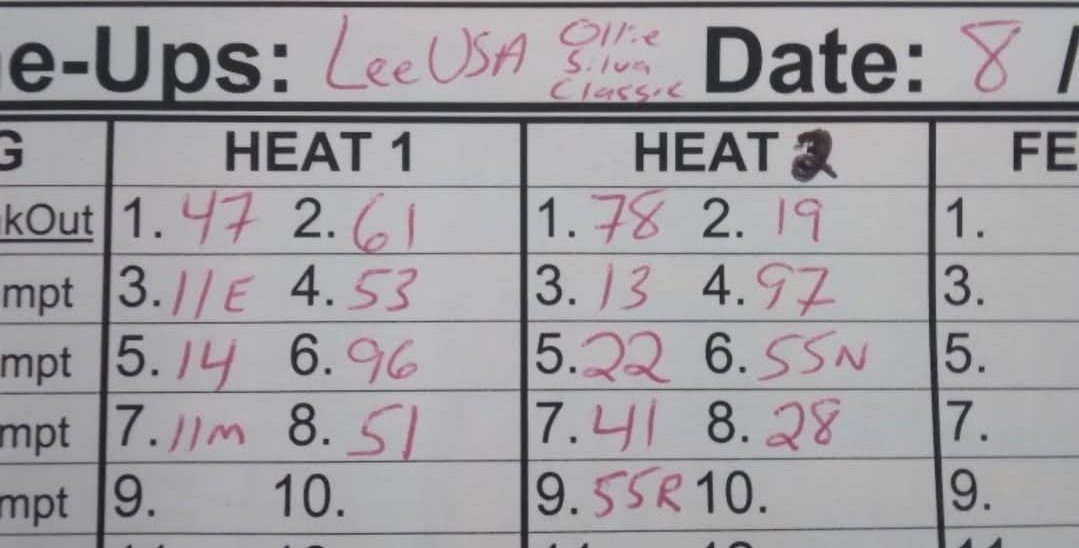 e-Ups: Lee USA Ollie Silva Classic Date: 8 /
G HEAT 1 HEAT 2 FE
kOut 1. 47 2. 61 1. 78 2. 19 1.
mpt 3. 11E 4. 53 3. 13 4. 97 3.
mpt 5. 14 6. 96 5. 22 6. 55N 5.
mpt 7. 11M 8. 51 7. 41 8. 28 7.
mpt 9. 10. 9. 55R 10. 9.